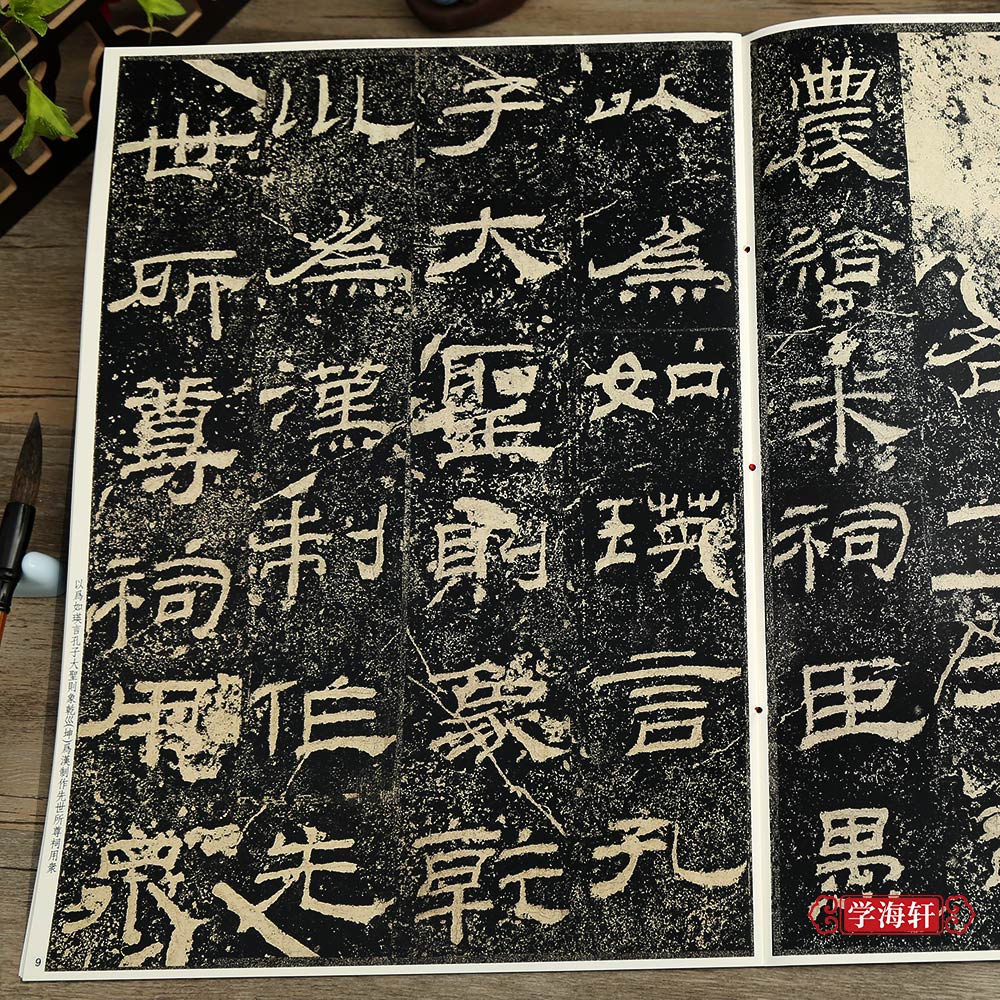 農給米祠臣愚
以為如瑛言孔
子大聖則象乾
巛為漢制作先
世所尊祠用衆
以爲如瑛言孔子大聖則象乾巛(坤)爲漢制作先世所尊祠用衆
9
学海轩